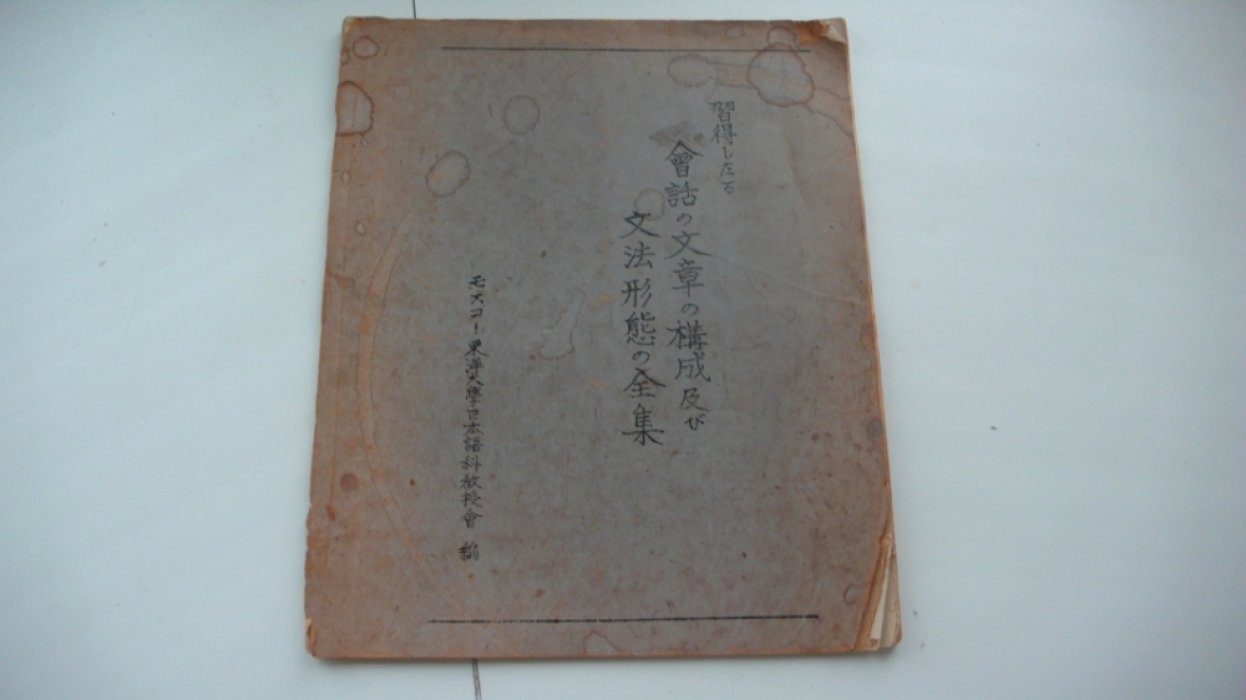 習得したる
會話の文章の構成及び
文法形態の全集
モスコー東洋大學日本語科教授會 編